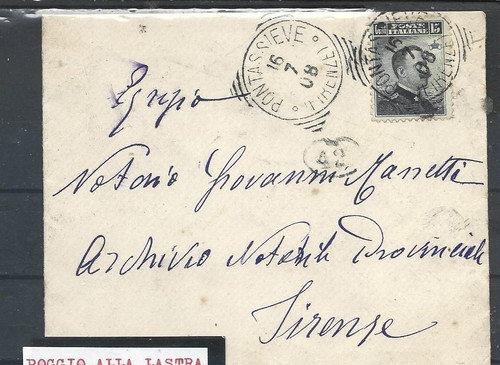 PONTASSIEVE (FIRENZE)
16
7
08
POSTE ITALIANE 15
PONTASSIEVE (FIRENZE)
16
7
08
Egregio
42
Notaro Giovanni Mannetti
Archivio Notarile Provinciale
Firenze
POGGIO ALLA LASTRA